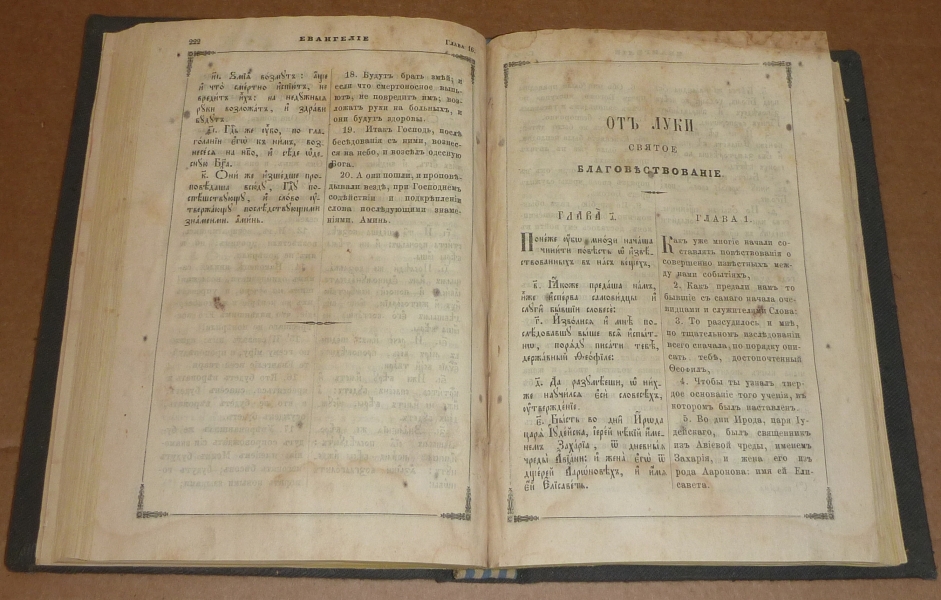 222
ЕВАНГЕЛІЕ
Глава 16.
и҃і. Ѕмїѧ возмутъ: аще
и что смертно испїютъ, не
вредитъ ихъ: на недужныѧ
руки возложатъ, и здрави
будутъ.
ѳ҃і. Гдⷭ҇ь же ѹбо, по гла-
голанїи егѡ къ нимъ, воз-
несесѧ на нбо, и сѣде ѡде-
сную Бга.
к҃. Они же изшедше про-
повѣдаша всюду, Гду по-
спѣшствующу, и слово ѹ-
твержающу послѣдствующими
знаменми. Аминь.
18. Будутъ брать змѣй; и
если что смертоносное выпь-
ютъ, не повредитъ имъ; воз-
ложатъ руки на больныхъ, и
они будутъ здоровы.
19. Итакъ Господь, послѣ
бесѣдованія съ ними, вознес-
ся на небо, и возсѣлъ одесную
Бога.
20. А они пошли, и проповѣ-
дывали вездѣ, при Господнемъ
содѣйствіи и подкрѣпленіи
слова послѣдующими знаме-
ніями. Аминь.
ОТЪ ЛУКИ
СВЯТОЕ
БЛАГОВѢСТВОВАНІЕ.
ГЛАВА а҃.
Понеже ѹбѡ мнози начаша
чинити повѣсть ѡ извѣ-
ствованныхъ въ насъ вещехъ,
в҃. Ꙗкоже предаша намъ,
иже исперва самовидцы и
слуги бывшїи словесе:
г҃. Изволисѧ и мнѣ по-
слѣдовавшу выше всѧ испыт-
нѡ, порѧду писати тебѣ,
державный Ѳеофїле:
д҃. Да разумѣеши, ѡ них-
же научилсѧ еси словесѣхъ,
ѹтвержденїе.
е҃. Бысть во дни Ирѡда
царѧ Іудейска, іерей нѣкїй име-
немъ Захарїа, ѿ дневныѧ
чреды Авїани: и жена егѡ ѿ
дщерей Аарѡновѣхъ, и имѧ
ей Елїсаветь.
ГЛАВА 1.
Какъ уже многіе начали со-
ставлять повѣствованія о
совершенно извѣстныхъ меж-
ду нами событіяхъ,
2. Какъ предали намъ то
бывшіе съ самаго начала оче-
видцами и служителями Слова:
3. То разсудилось и мнѣ,
по тщательномъ наслѣдованіи
всего сначала, по порядку опи-
сать тебѣ, достопочтенный
Ѳеофилъ,
4. Чтобы ты узналъ твер-
дое основаніе того ученія, въ
которомъ былъ наставленъ.
5. Во дни Ирода, царя Іу-
дейскаго, былъ священникъ
изъ Авіевой чреды, именемъ
Захарія, и жена его изъ
рода Ааронова: имя ей Ели-
савета.